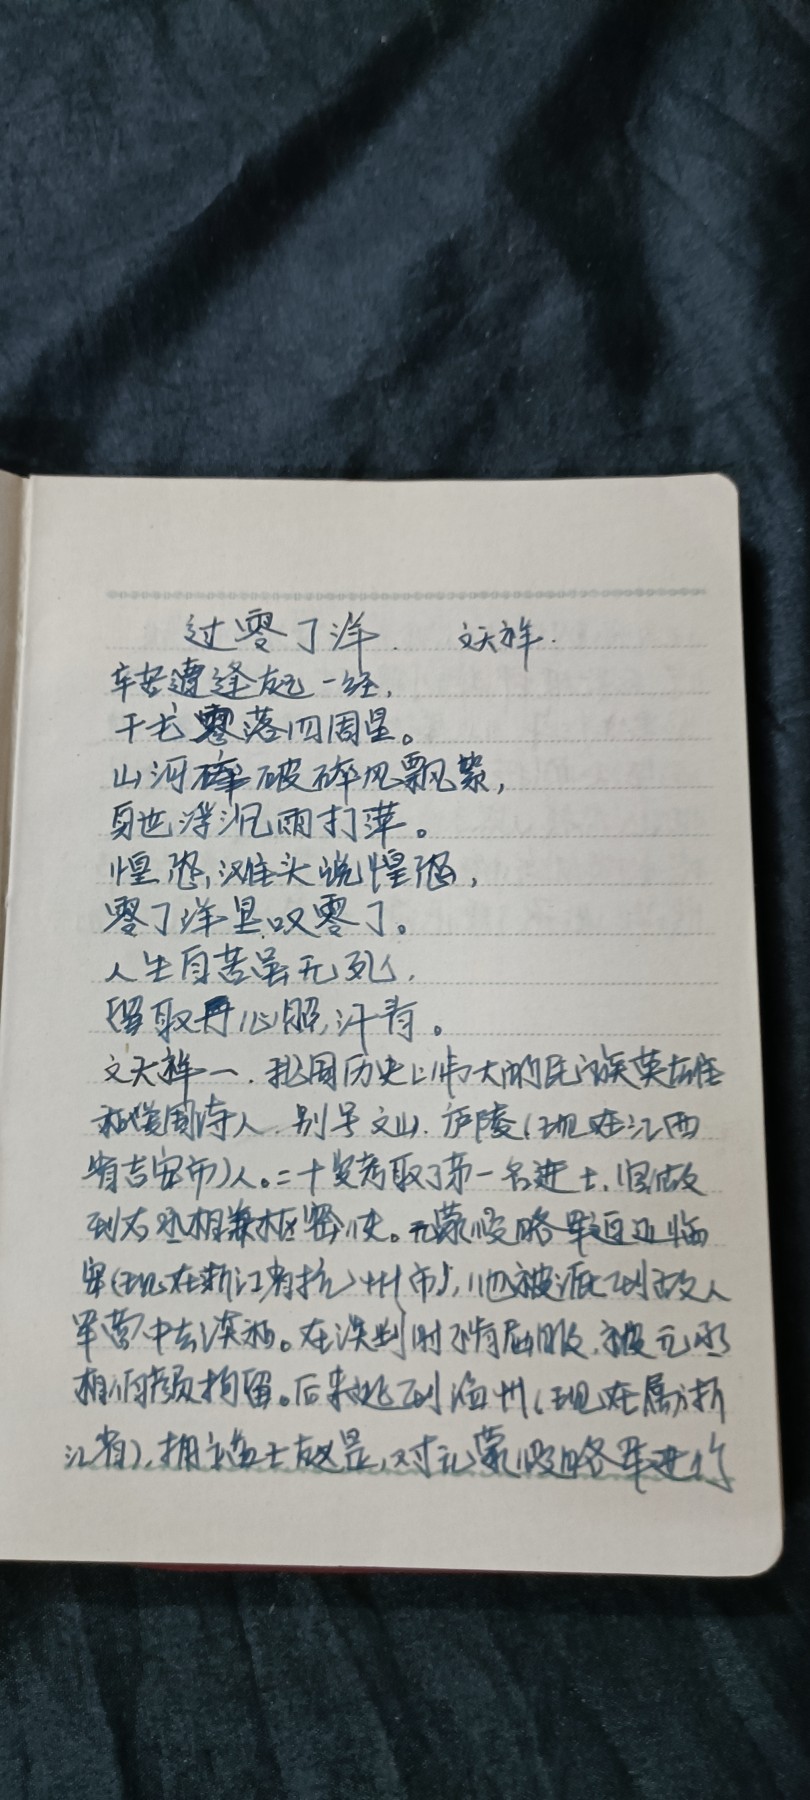 过零丁洋. 文天祥.
辛苦遭逢起一经,
干戈零落四周星。
山河破碎风飘絮,
身世浮沉雨打萍。
惶恐滩头说惶恐,
零丁洋里叹零丁。
人生自古虽无死,
留取丹心照汗青。
文天祥一. 我国历史上伟大的民族英雄
和爱国诗人. 别号文山. 庐陵(现在江西
省吉安市)人。二十岁考取了第一名进士.
到右丞相兼枢密使。元蒙侵略军逼近临
安(现在浙江省杭州市), 他被派到敌人
军营中去谈和。在谈判时不肯屈服. 被元丞
相伯颜拘留。后来逃到温州(现在属浙
江省), 拥立益王赵昰, 对元蒙侵略军进行